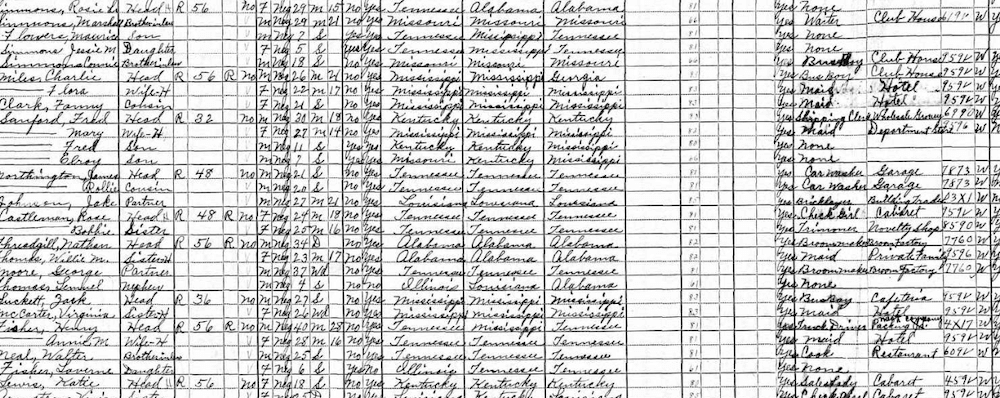 Simmons, Rosie L Head H R 56 No F Neg 29 M 15 No Yes Tennessee Alabama Alabama 81 Yes None
Simmons, Marshall Brotherinlaw M Neg 29 M 21 No Yes Missouri Missouri Missouri 66 Yes Waiter Club House W
Flowers, Maurice Son M Neg 7 S Yes Yes Tennessee Mississippi Tennessee 81 Yes None
Simmons Jessie M. Daughter F Neg 5 S Yes Tennessee Mississippi Tennessee Yes None
Simmons Connie Brotherinlaw M Neg 18 S No Yes Missouri Missouri Missouri 66 Yes Bus Boy Club House 959V W
Miles, Charlie Head R 56 R No M Neg 26 M 21 No Yes Mississippi Mississippi Georgia 83 Yes Bus Boy Club House 959V W
Flora Wife-H F Neg 22 M 17 No Yes Mississippi Mississippi Mississippi 83 Yes Maid Hotel 959V W
Clark, Fanny Cousin F Neg 21 S No Yes Mississippi Mississippi Mississippi 83 Yes Maid Hotel 959V W
Sanford, Fred Head R 32 No M Neg 30 M 18 No Yes Kentucky Kentucky Kentucky Yes Shipping Clerk Wholesale Grocery W
Mary Wife-H F Neg 27 M 14 No Yes Mississippi Mississippi Mississippi Yes Maid Department Store W
Fred Son M Neg 11 S Yes Yes Kentucky Kentucky Mississippi Yes None
Elroy Son M Neg 7 S Yes Yes Missouri Kentucky Mississippi 66 Yes None
Worthington, James Head R 48 No M Neg 21 S No Yes Tennessee Tennessee Tennessee 81 Yes Car Washer Garage 7873 W
Rallie Cousin M Neg 20 S No Yes Tennessee Tennessee Tennessee 81 Yes Car Washer Garage 7873 W
Johnson, Jake Partner M Neg 27 M 21 No Yes Louisiana Louisiana Louisiana Yes Bricklayer Building Trades W
Castleman, Rose Head H R 48 R No F Neg 24 M 18 No Yes Tennessee Tennessee Tennessee 81 Yes Check Girl Cabaret 959V W
Bobbie Sister F Neg 25 M 16 No Yes Tennessee Tennessee Tennessee 81 Yes Trimmer Novelty Shop 8590 W
Threadgill, Nathan Head R 56 R No M Neg 34 D No Yes Alabama Alabama Alabama 82 Yes Broommaker Broom Factory 7760 W
Thomas, Willie M. Sister H F Neg 23 M 17 No Yes Alabama Alabama Alabama 82 Yes Maid Private Family 9596 W
Moore, George Partner M Neg 37 Wd No Yes Tennessee Tennessee Tennessee 81 Yes Broommaker Broom Factory 7760 W
Thomas, Lemuel Nephew M Neg 4 S No No Illinois Louisiana Alabama 61 Yes None
Luckett, Jack Head R 36 No M Neg 27 S No Yes Mississippi Mississippi Mississippi 83 Yes Bus Boy Cafeteria 459V W
McCarter, Virginia Sister H F Neg 26 Wd No Yes Mississippi Mississippi Mississippi 83 Yes Maid Hotel 959V W
Fisher, Henry Head R 56 R No M Neg 40 M 28 No Yes Tennessee Mississippi Tennessee 81 Yes Truck Driver Packing Co 4X17 W
Annie M. Wife-H F Neg 28 M 16 No Yes Tennessee Mississippi Tennessee 81 Yes Maid Hotel 959V W
Neal, Walter Brotherinlaw M Neg 25 S No Yes Tennessee Tennessee Tennessee 81 Yes Cook Restaurant 609V W
Fisher, Laverne Daughter F Neg 6 S Yes No Illinois Tennessee Tennessee 61 Yes None
Lewis, Katie Head H R 56 No F Neg 18 S No Yes Kentucky Kentucky Kentucky Yes Saleslady Cabaret 459V W